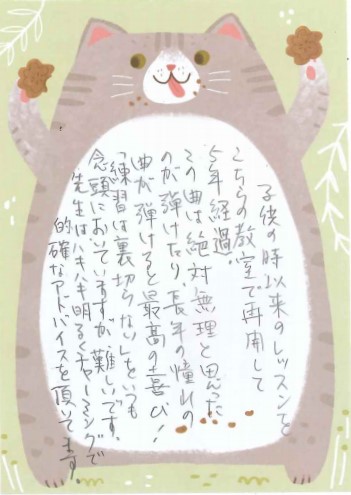 子供の時以来のレッスンを
こちらの教室で再開して
5年経過。
この曲は絶対無理と思った
のが弾けたり、長年の憧れの
曲が弾けると最高の喜び！
「練習は裏切らない」をいつも
念頭においていますが、難しいです。
先生はハキハキ明るくチャーミングで
的確なアドバイスを頂いてます。